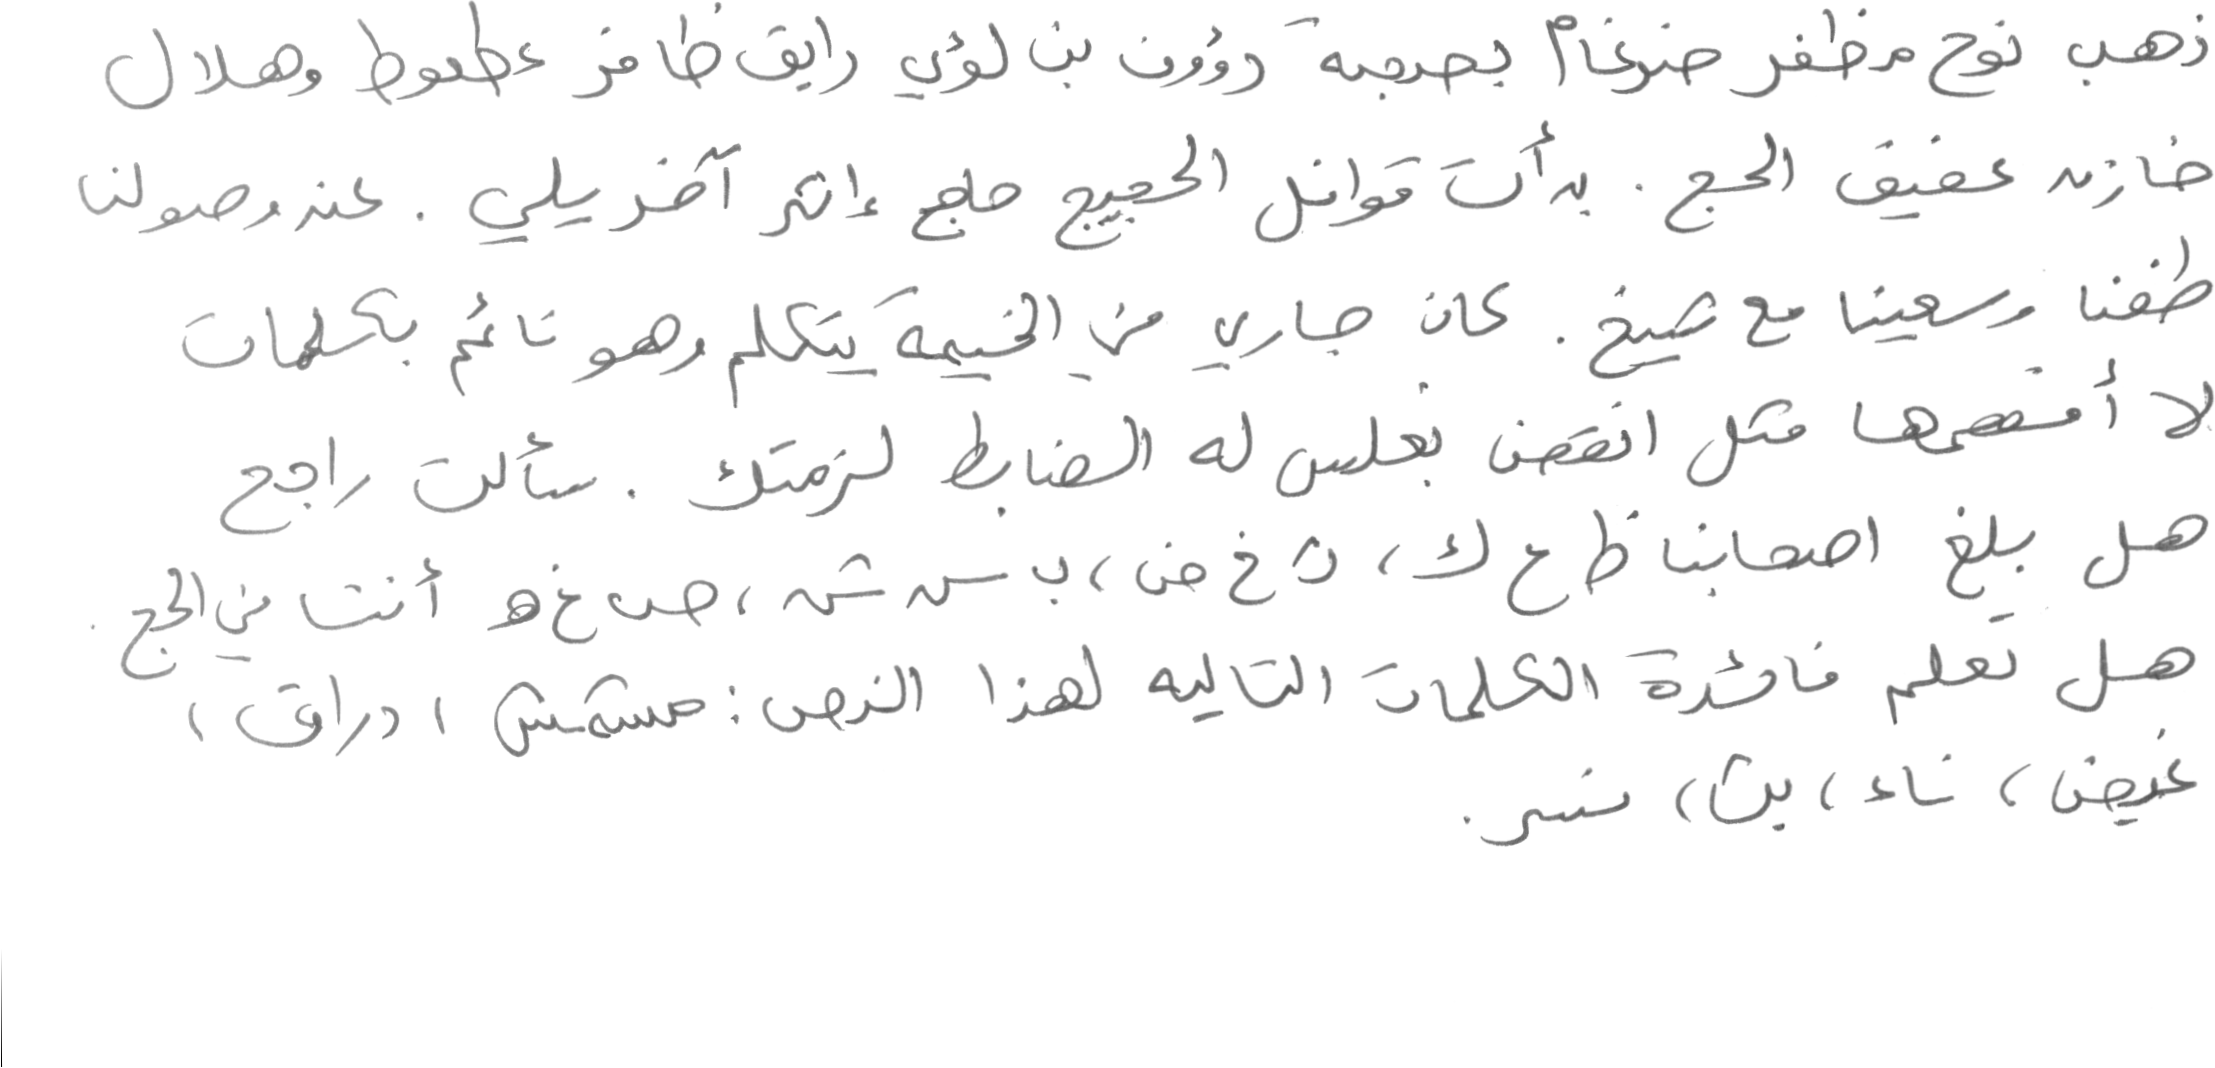 ذهب نوح مظفر ضرغام بصحبة رؤوف بن لؤي رايق ظافر عطعوط وهلال
خازن عفيف الحج. بدأت قوافل الحجيج حاج إثر آخر يلي. عند وصولنا
طفنا وسعينا مع شيخ. كان جاري في الخيمة يتكلم وهو نائم بكلمات
لا أفهمها مثل انقض تغلس له الضابط لزمتك. سألت راجح
هل بلغ اصحابنا ظ ع ك، ث خ ض، ب س ش، ص غ ه أنت في الحج.
هل تعلم فائدة الكلمات التاليه لهذا النص: مشمش، دراق،
غيض، ناء، بث، نسر.